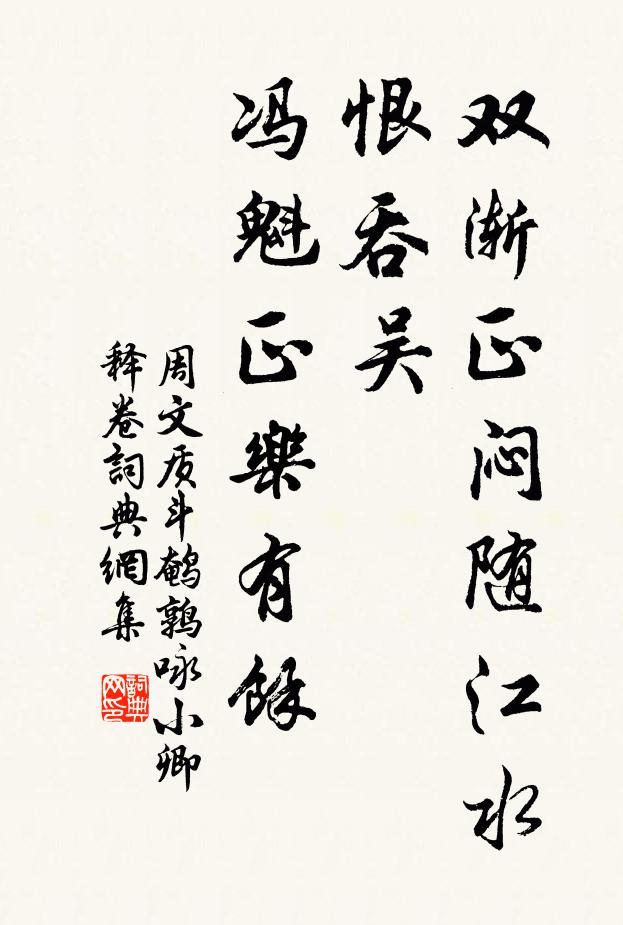 双渐正闷随江水
恨吞吴
冯魁正樂有馀
周文质斗鹌鹑咏小卿
释卷詞典網集
詞典
网印